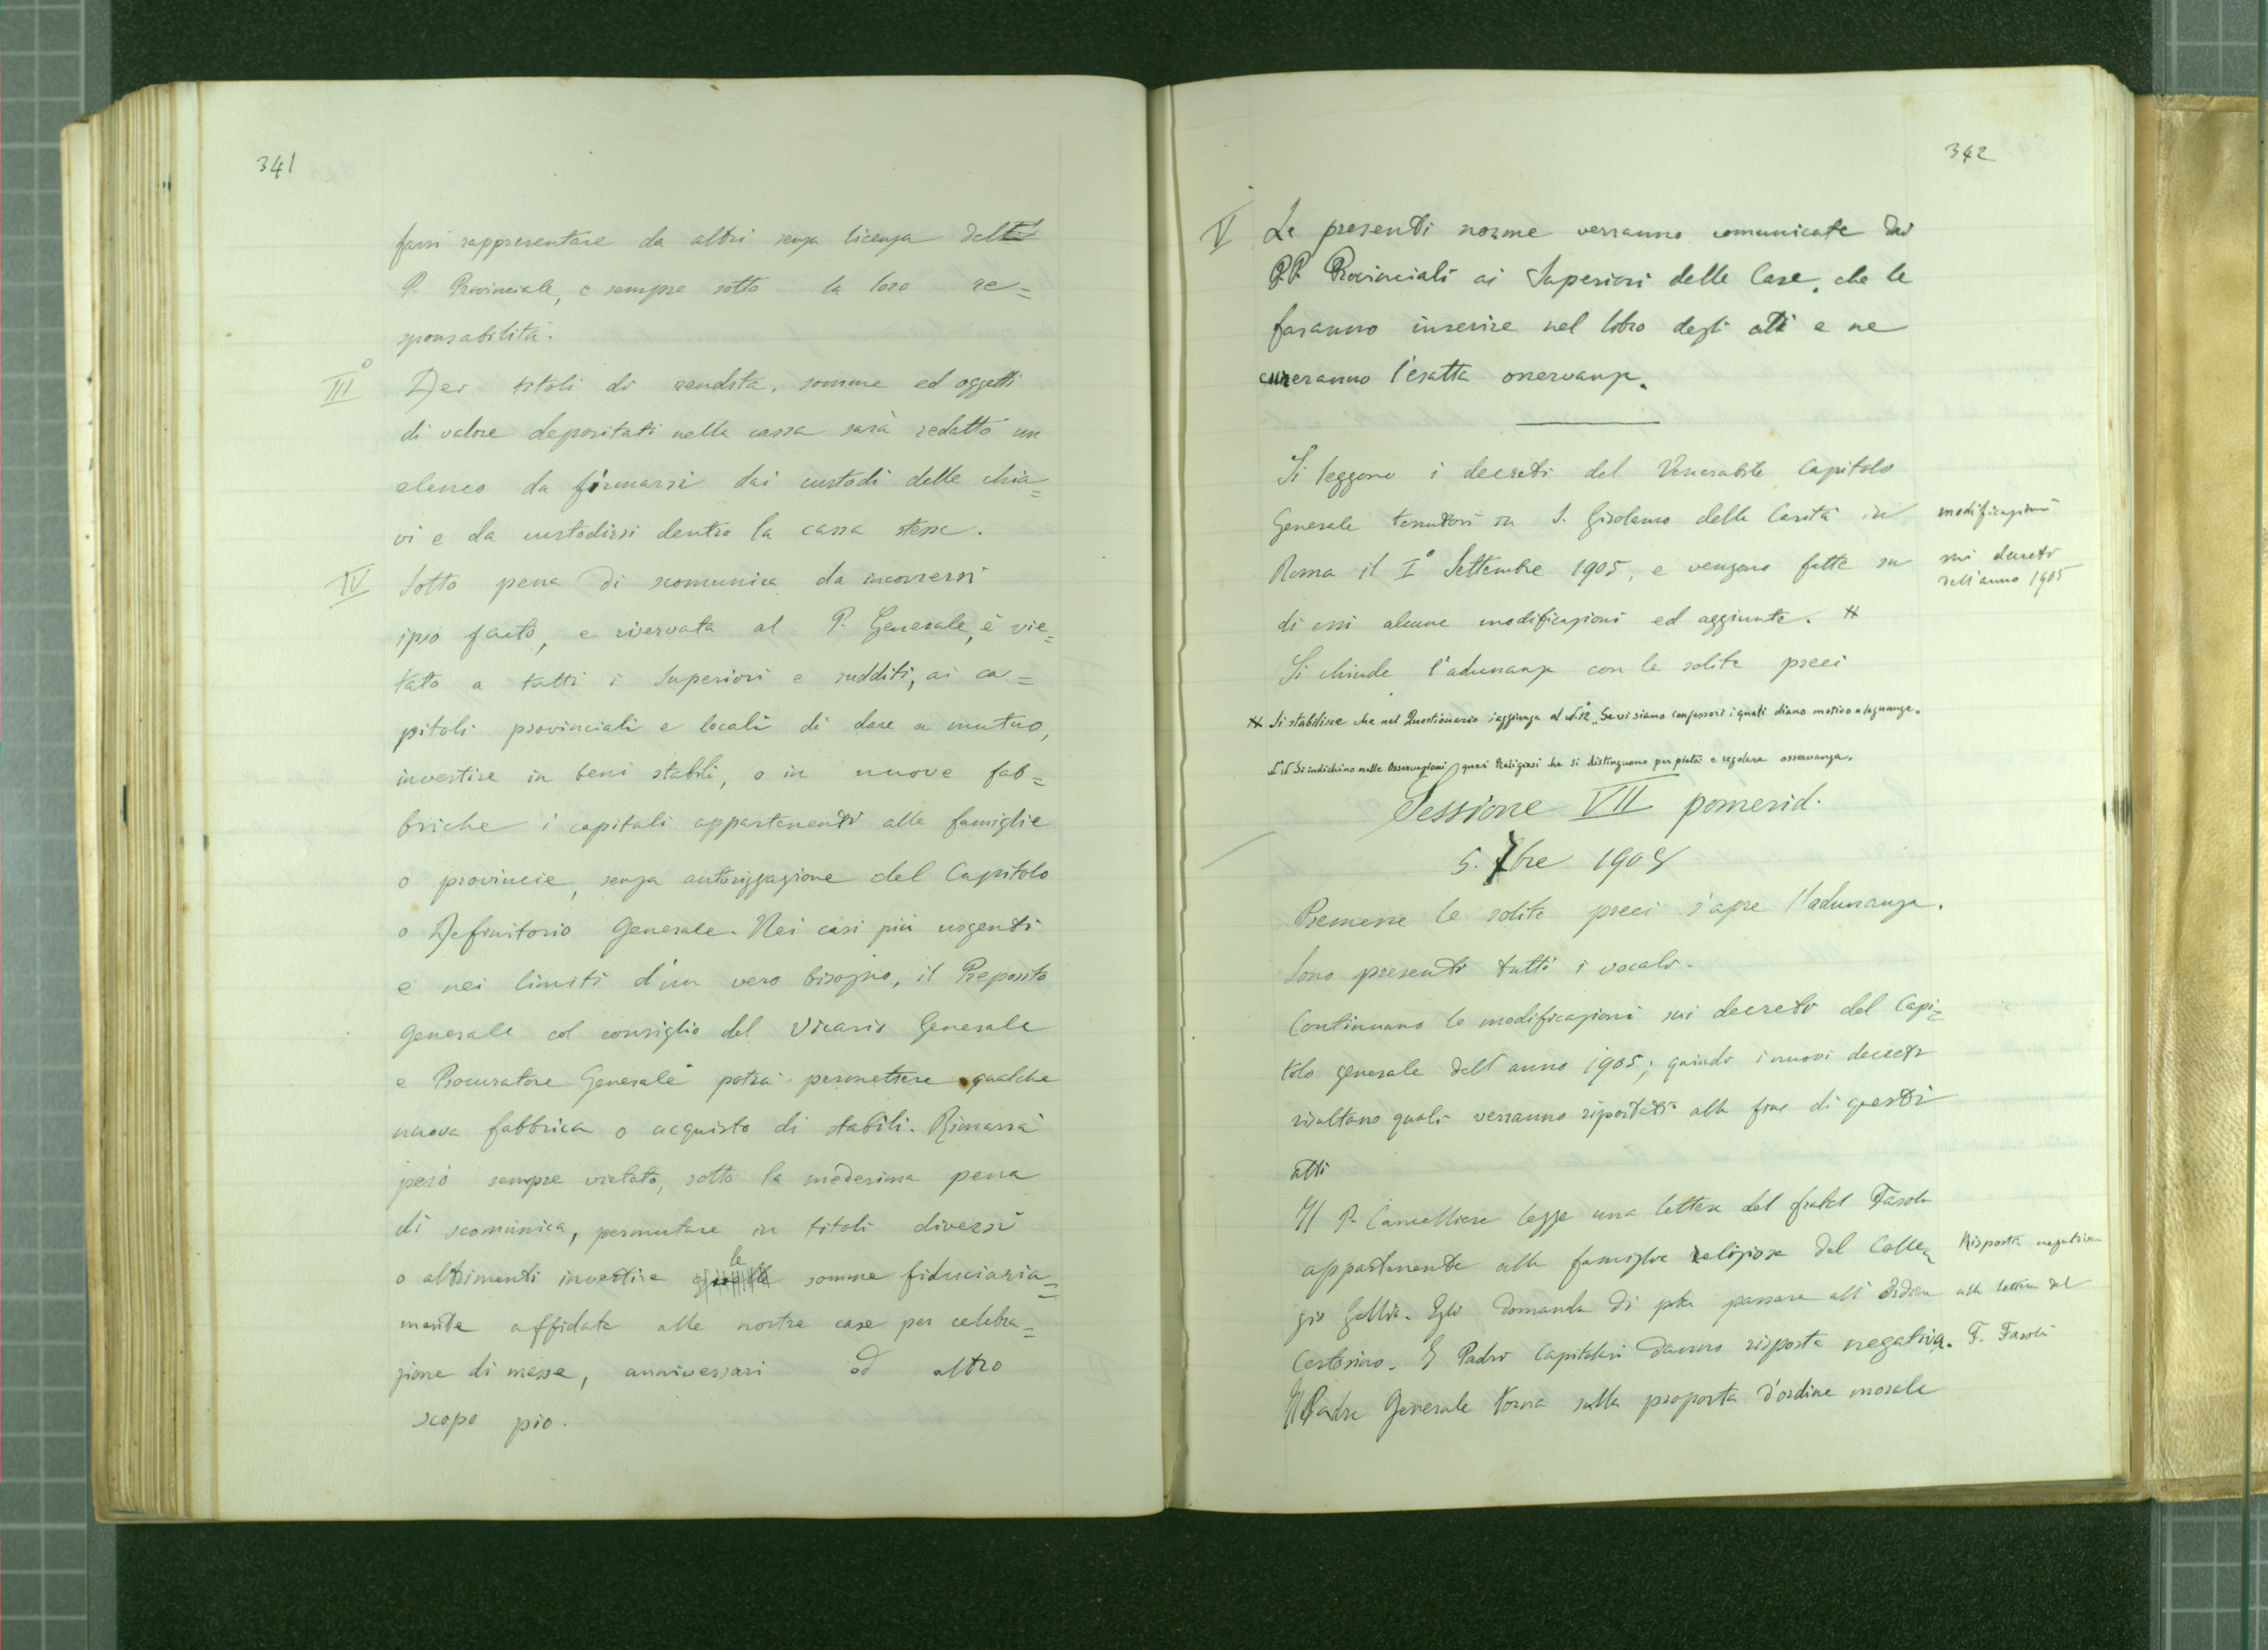 341
farsi rappresentare da altri senza licenza del
P. Provinciale, e sempre sotto la loro re=
sponsabilità.
III° Dei titoli di rendita, somme ed oggetti
di valore depositati nella cassa sarà redatto un
elenco da firmarsi dai custodi delle chia=
vi e da custodirsi dentro la cassa stessa.
IV Sotto pena di scomunica da incorrersi
ipso facto, e riservata al P. Generale, è vie=
tato a tutti i Superiori e sudditi, ai ca=
pitoli provinciali e locali di dare a mutuo,
investire in beni stabili, o in nuove fab=
briche i capitali appartenenti alle famiglie
o provincie, senza autorizzazione del Capitolo
o Definitorio Generale. Nei casi più urgenti
e nei limiti d'un vero bisogno, il Preposito
Generale col consiglio del Vicario Generale
e Procuratore Generale potrà permettere qualche
nuova fabbrica o acquisto di stabili. Rimarrà
però sempre vietato, sotto la medesima pena
di scomunica, permutare in titoli diversi
o altrimenti investire le somme fiduciaria=
mente affidate alle nostre case per celebra=
zione di messe, anniversari od altro
scopo pio.
342
V Le presenti norme verranno comunicate dai
P.P. Provinciali ai Superiori delle Case, che le
faranno inserire nel libro degli atti e ne
cureranno l'esatta osservanza.
Si leggono i decreti del Venerabile Capitolo
Generale tenutosi in S. Girolamo della Carità in
Roma il I° Settembre 1905, e vengono fatte su
di essi alcune modificazioni ed aggiunte. #
modificazioni
sui decreti
dell'anno 1905
Si chiude l'adunanza con le solite preci
# Si stabilisce che nel Questionario s'aggiunga al N. 12 „ Se vi siano confessori i quali diano motivo a lagnanze „
Si indichino nelle Osservazioni quei Religiosi che si distinguono per pietà e regolare osservanza.
Sessione VII pomerid.
5. 7bre 1908
Premesse le solite preci s'apre l'adunanza.
Sono presenti tutti i vocali.
Continuano le modificazioni sui decreti del Capi=
tolo generale dell'anno 1905; quindi i nuovi decreti
risultano quali verranno riportati alla fine di questi
atti
Il P. Cancelliere legge una lettera del fratel Fasoli
appartenente alla famiglia religiosa del Colle=
gio Gallio. Egli domanda di poter passare all'Ordine
Certosino. I Padri Capitolari danno risposta negativa.
Risposta negativa
alla lettera del
F. Fasoli
Il Padre Generale torna sulla proposta d'ordine morale